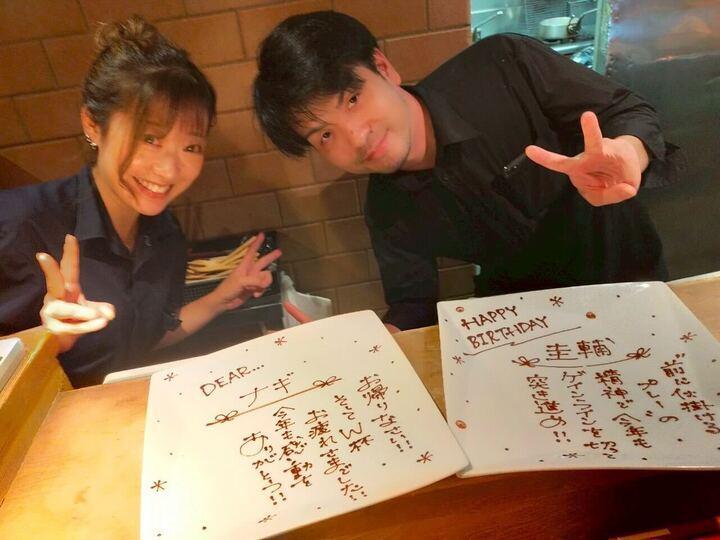 DEAR...
ナギ
お帰りなさい!!
そして W杯
お疲れさまでした!!
今年も感動を
ありがとう!!
HAPPY
BIRTHDAY
圭輔
"前に仕掛ける
プレー"の
精神で 今年も
ゲインラインを切って
突き進め!!